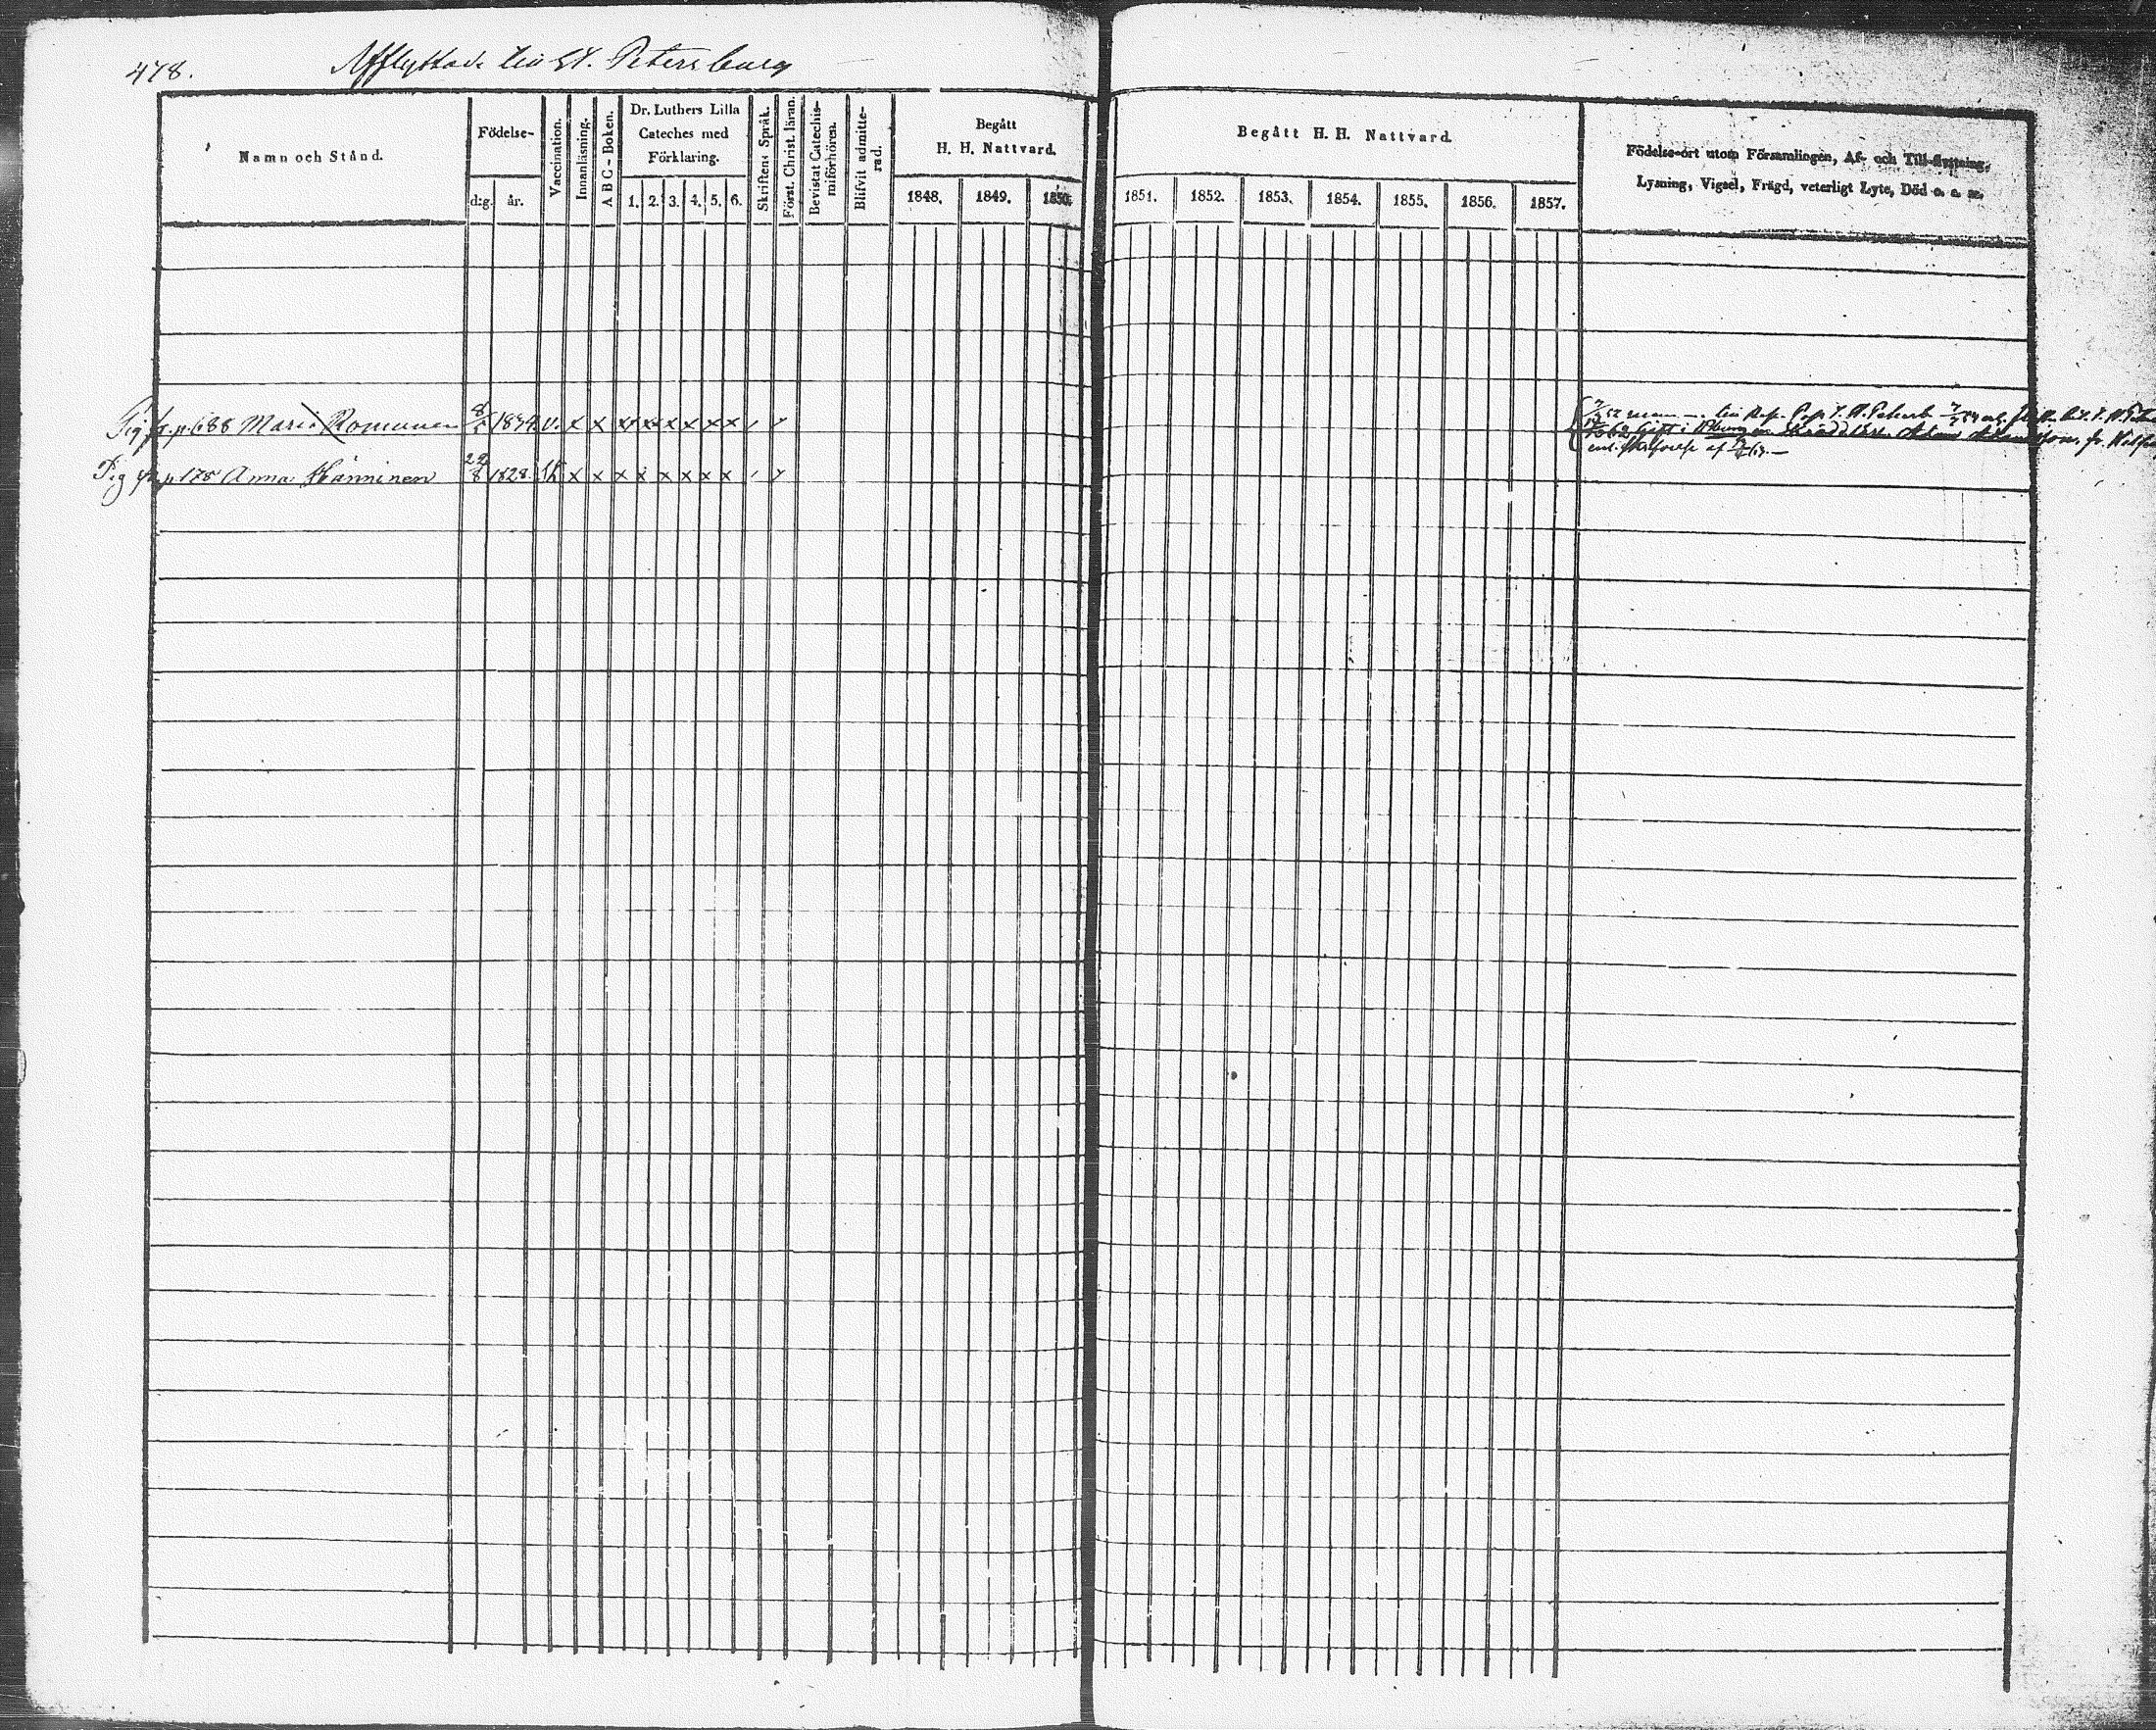 478.
Afflyttade till St. Petersburg
Namn och Stånd.
Födelse-
d:g. år.
Vaccination.
Innanläsning.
A B C - Boken.
Dr. Luthers Lilla
Cateches med
Förklaring.
1. 2. 3. 4. 5. 6.
Skriftens Språk.
Först. Christ. läran.
Bevistat Catechis-
miförhören.
Blifvit admitte-
rad.
Begått
H. H. Nattvard.
1848. 1849. 1850.
Begått H. H. Nattvard.
1851. 1852. 1853. 1854. 1855. 1856. 1857.
Födelse-ort utom Församlingen, Af- och Till-flyttning,
Lysning, Vigsel, Frägd, veterligt Lyte, Död o. s. m.
Pig fr. p. 688 Maria Romunen 8/5 1834 v. x x x x x x x x
Pig fr. p. 178 Anna Hänninen 22/8 1828. x x x x x x x x
Gift i